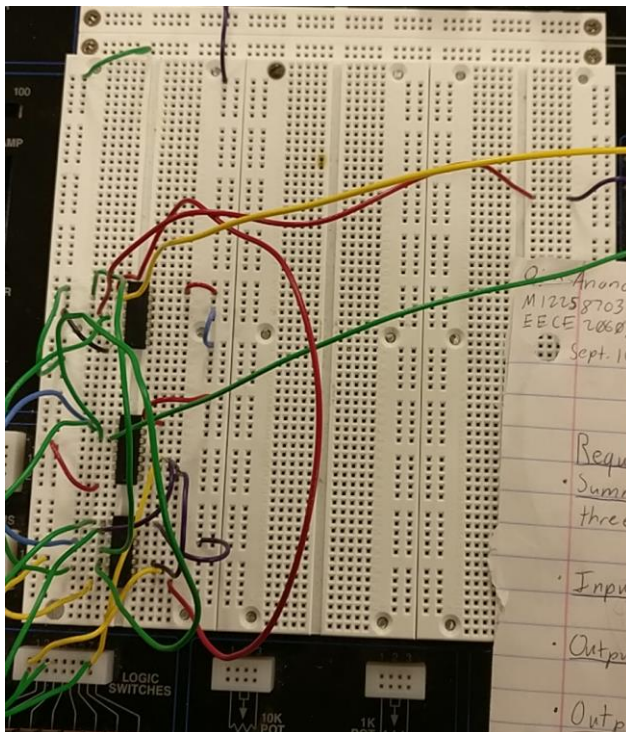 100
AMP
R
Anand
M12258703
EECE 2060
Sept. 1
Requ
· Summ
three
· Inpu
· Outpu
· Outp
S
LOGIC
SWITCHES
10K
POT
1 2 3
1K
POT